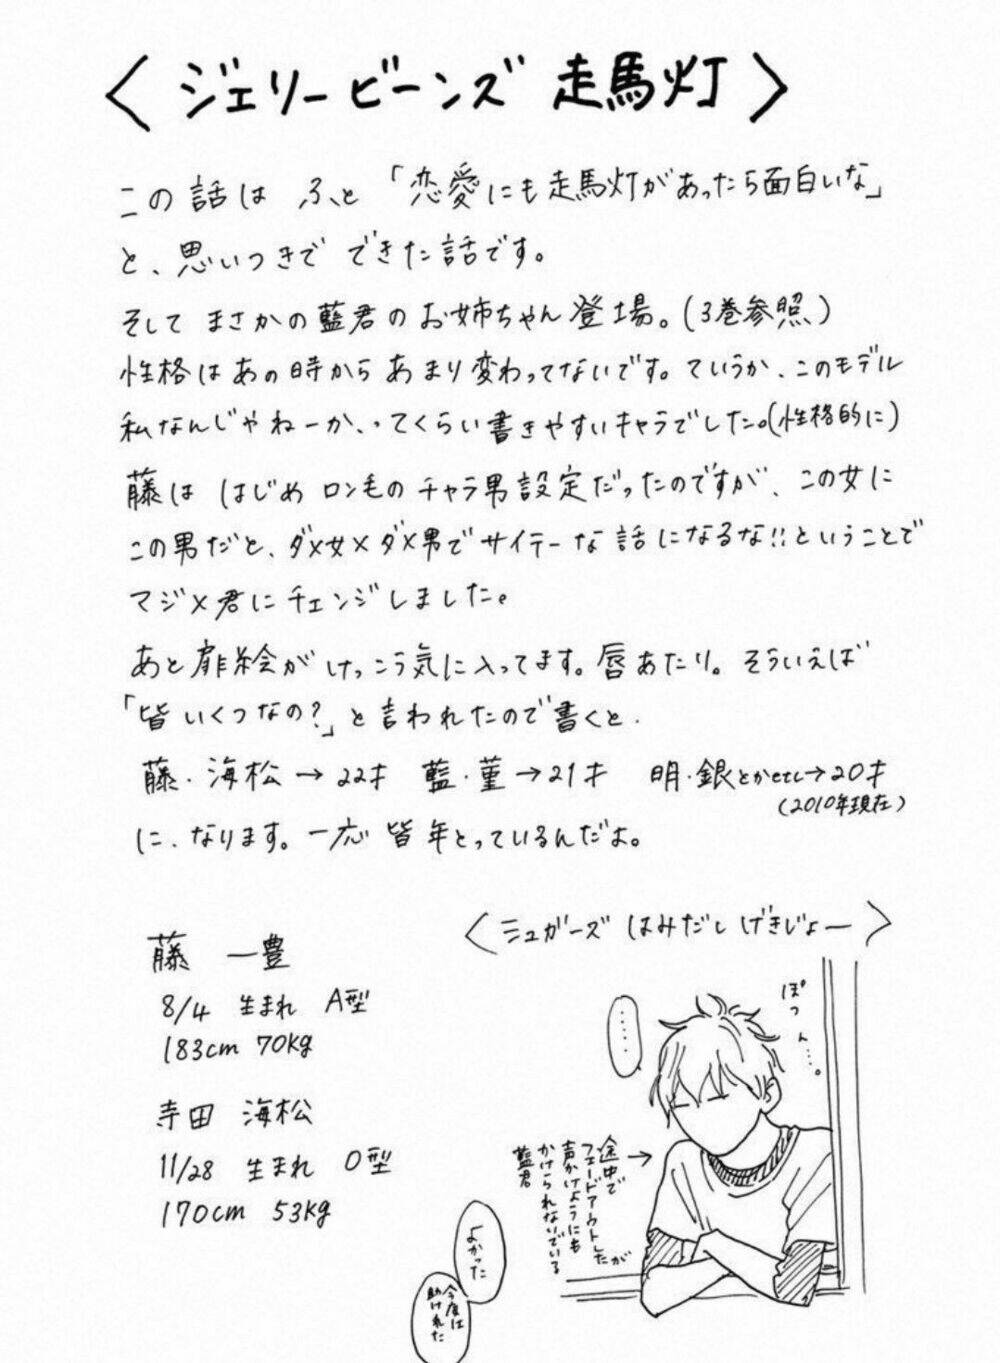 〈ジェリービーンズ 走馬灯〉
この話は ふと 「恋愛にも走馬灯があったら面白いな」
と、思いつきで できた話です。
そして まさかの藍君のお姉ちゃん登場。(3巻参照)
性格はあの時から あまり変わってないです。ていうか、このモデル
私なんじゃねーか、ってくらい書きやすいキャラでした。(性格的に)
藤は はじめ ロン毛の チャラ男設定だったのですが、この女に
この男だと、ダメ女×ダメ男で サイテーな話になるな!!ということで
マジメ君にチェンジしました。
あと扉絵が けっこう気に入ってます。唇あたり。そういえば
「皆いくつなの?」と言われたので書くと、
藤・海松→22才 藍・菫→21才 明・銀とかetc→20才
(2010年現在)
に、なります。一応 皆年とっているんだよ。
藤 一豊
8/4 生まれ A型
183cm 70kg
寺田 海松
11/28 生まれ O型
170cm 53kg
〈シュガーズ はみだし げきじょー〉
ぽつん…。
……
途中で
フェードアウトしたが
声かけようにも
かけられないでいる
藍君
→
よかった
今度は
助けれた